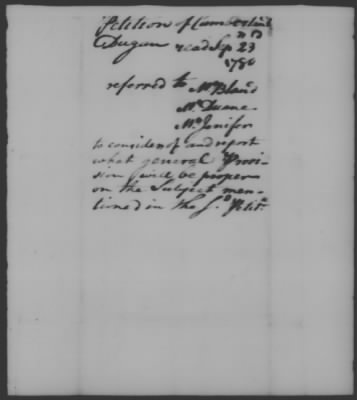 Petition of Cumberland
Dugan read Sep 23
1780
referred to Mr Bland
Mr Duane
Mr Jenifer
to consider of and report
what general Provi-
sion will be proper
on the Subject men-
tioned in the sd Petitn